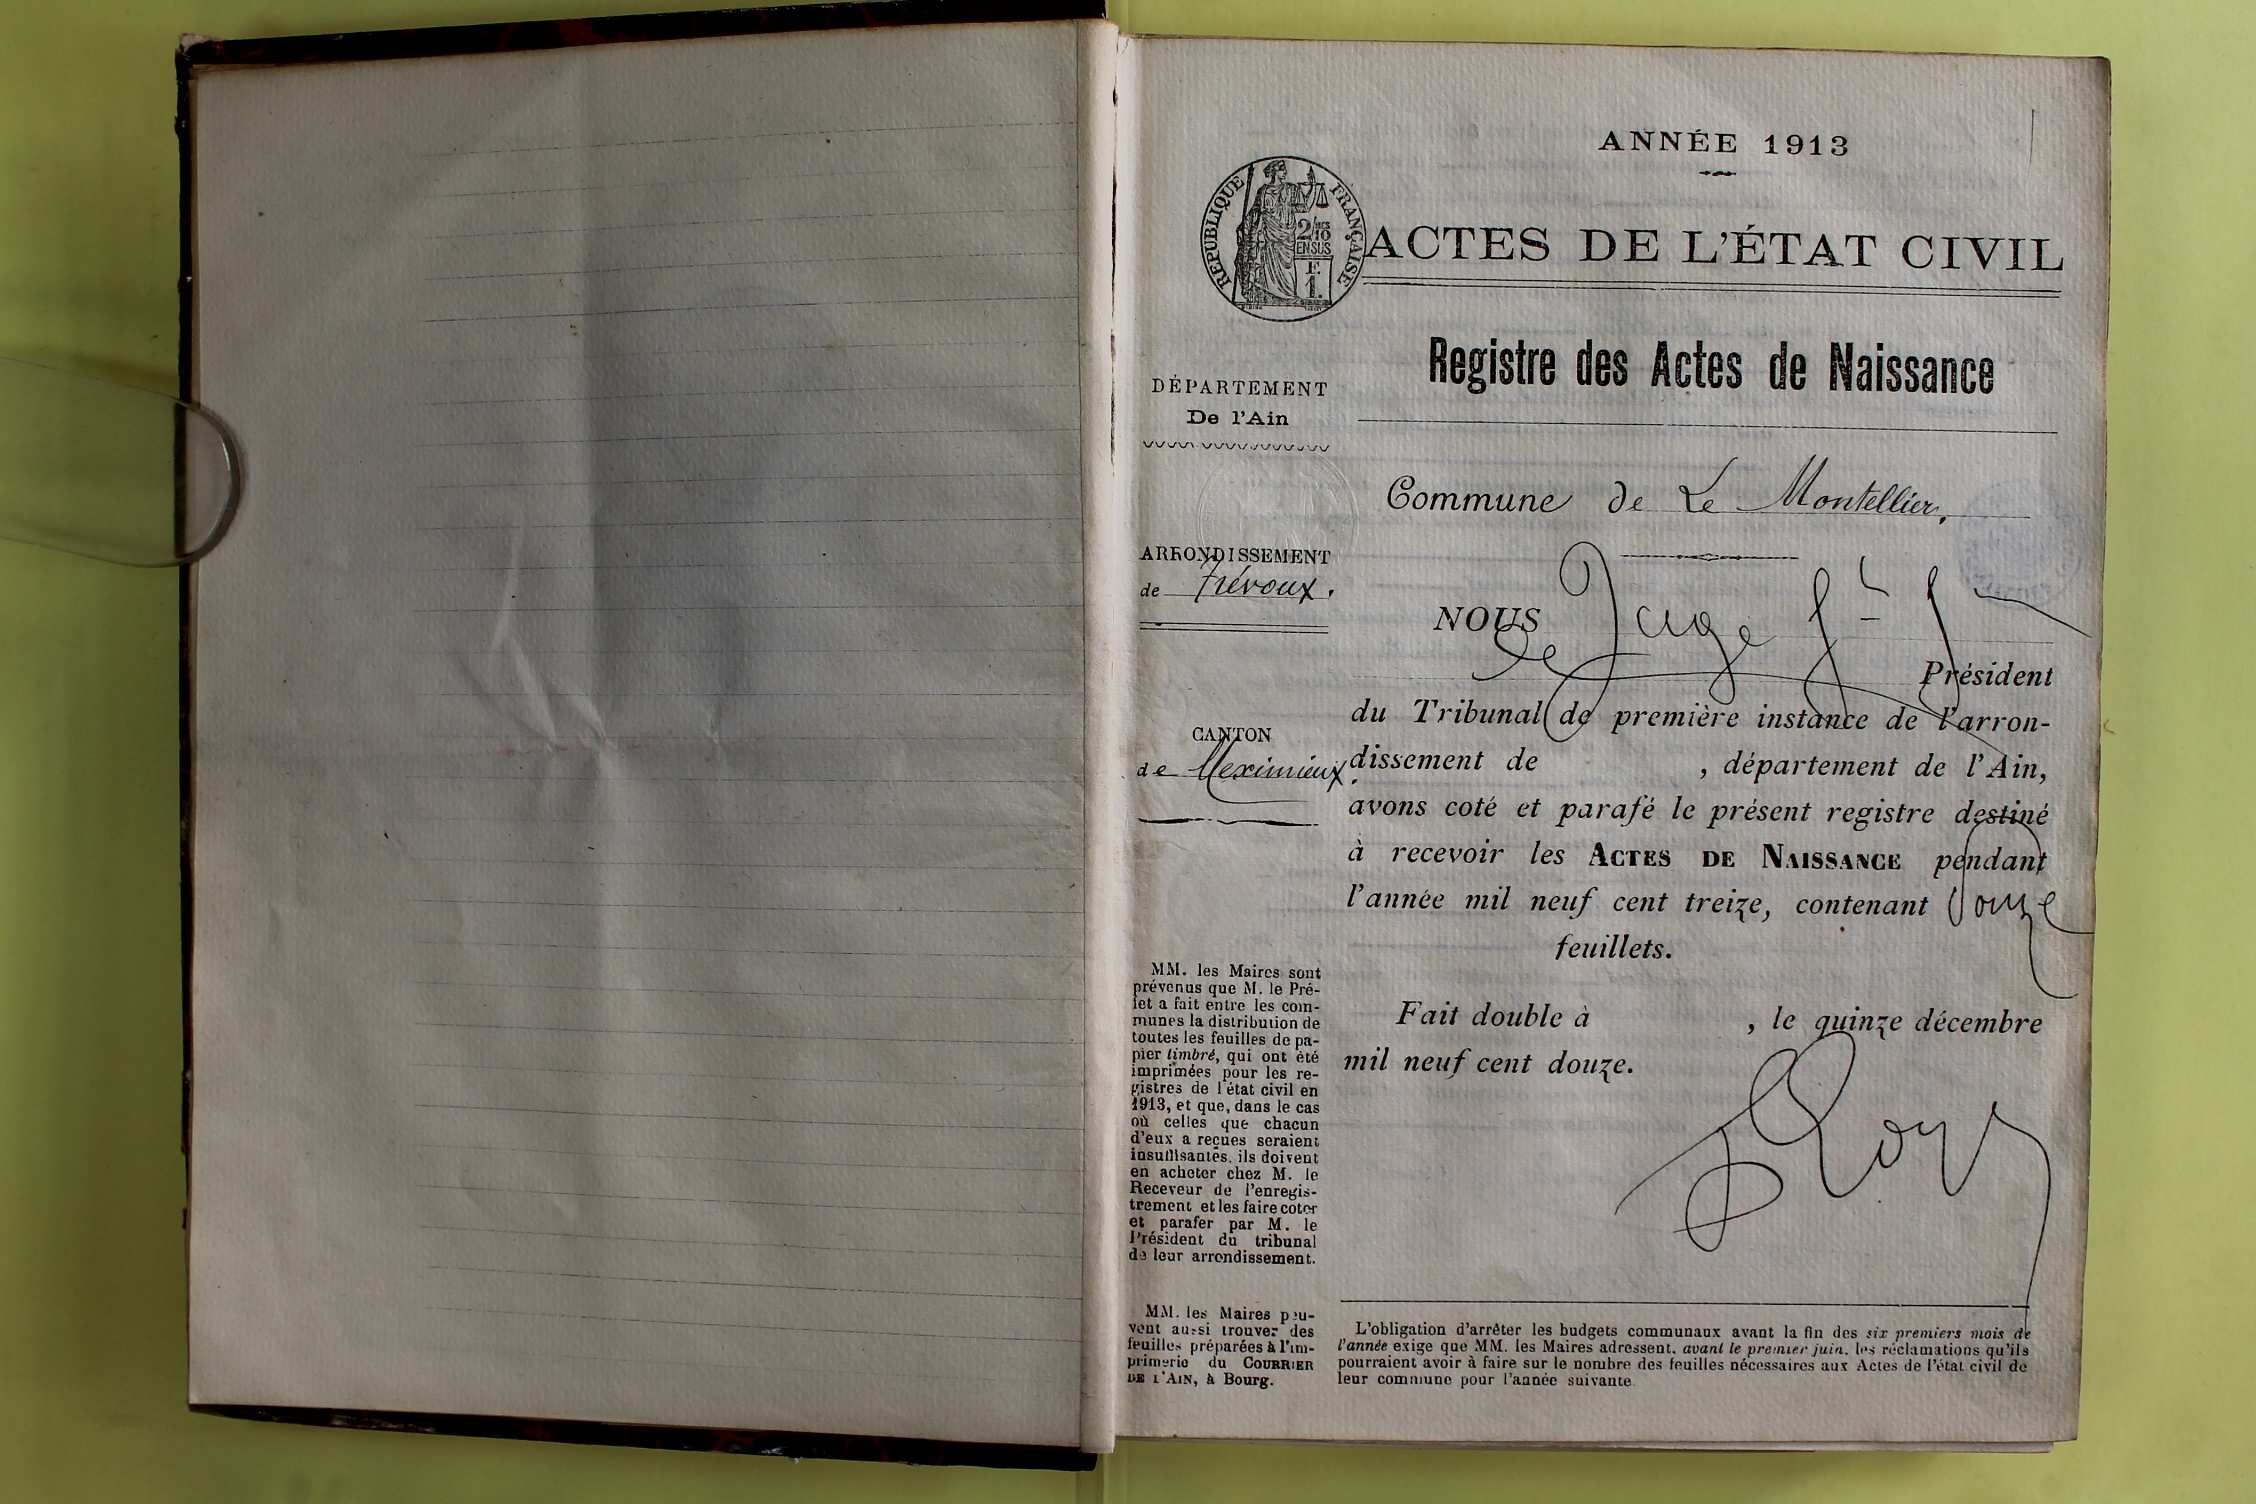 ANNÉE 1913
RÉPUBLIQUE FRANÇAISE
2/10
EN SUS
F.
1.
ACTES DE L'ÉTAT CIVIL
Registre des Actes de Naissance
DÉPARTEMENT
De l'Ain
Commune de Le Montellier.
ARRONDISSEMENT
de Trévoux.
CANTON
de Meximieux.
NOUS Juge
Président
du Tribunal de première instance de l'arron-
dissement de , département de l'Ain,
avons coté et parafé le présent registre destiné
à recevoir les ACTES DE NAISSANCE pendant
l'année mil neuf cent treize, contenant
feuillets.
Fait double à , le quinze décembre
mil neuf cent douze.
MM. les Maires sont
prévenus que M. le Pré-
fet a fait entre les com-
munes la distribution de
toutes les feuilles de pa-
pier timbré, qui ont été
imprimées pour les re-
gistres de l'état civil en
1913, et que, dans le cas
où celles que chacun
d'eux a reçues seraient
insuffisantes, ils doivent
en acheter chez M. le
Receveur de l'enregis-
trement et les faire coter
et parafer par M. le
Président du tribunal
de leur arrondissement.
MM. les Maires peu-
vent aussi trouver des
feuilles préparées à l'im-
primerie du COURRIER
DE L'AIN, à Bourg.
L'obligation d'arrêter les budgets communaux avant la fin des six premiers mois de
l'année exige que MM. les Maires adressent, avant le premier juin, les réclamations qu'ils
pourraient avoir à faire sur le nombre des feuilles nécessaires aux Actes de l'état civil de
leur commune pour l'année suivante.